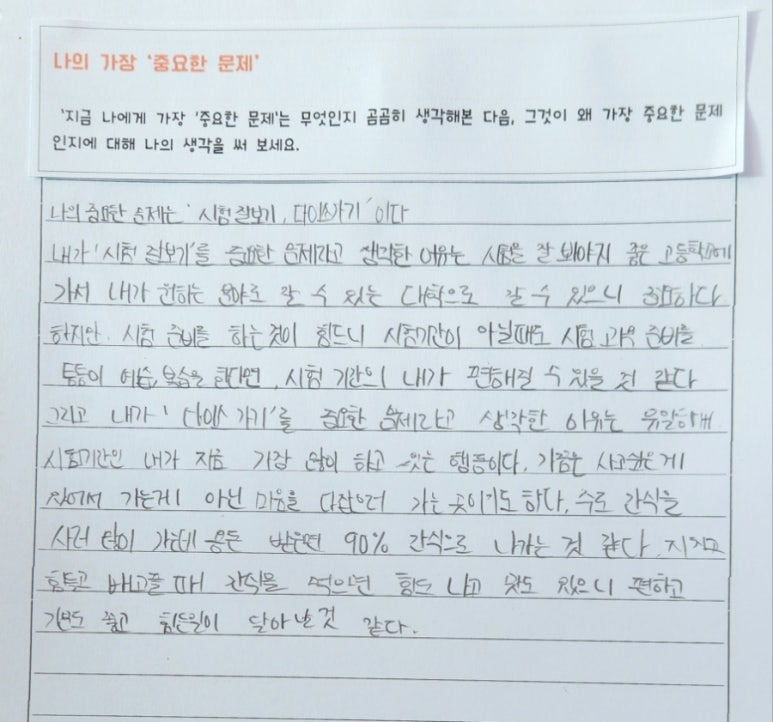 나의 가장 '중요한 문제'
'지금 나에게 가장 '중요한 문제'는 무엇인지 곰곰히 생각해본 다음, 그것이 왜 가장 중요한 문제
인지에 대해 나의 생각을 써 보세요.
나의 중요한 문제는 '시험 잘보기, 다이소가기' 이다
내가 '시험 잘보기'를 중요한 문제라고 생각한 이유는 시험을 잘 봐야지 좋은 고등학교에
가서 내가 원하는 분야로 갈 수 있는 대학으로 갈 수 있으니 중요하다
하지만. 시험 준비를 하는것이 힘드니 시험기간이 아닐때도 시험 과목 준비를
틈틈이 예습, 복습을 한다면, 시험 기간의 내가 편해질 수 있을 것 같다
그리고 내가 '다이소 가기'를 중요한 문제라고 생각한 이유는 유일하게
시험기간인 내가 지금 가장 많이 하고 있는 행동이다. 가끔은 사고싶은게
있어서 가는게 아닌 마음을 다잡으러 가는 곳이기도 하다. 주로 간식을
사러 많이 가는데 용돈 받으면 90% 간식으로 나가는 것 같다. 지치고
힘들고 배고플 때 간식을 먹으면 힘도 나고 맛도 있으니 편하고
기분도 좋고 힘든일이 달아난 것 같다.